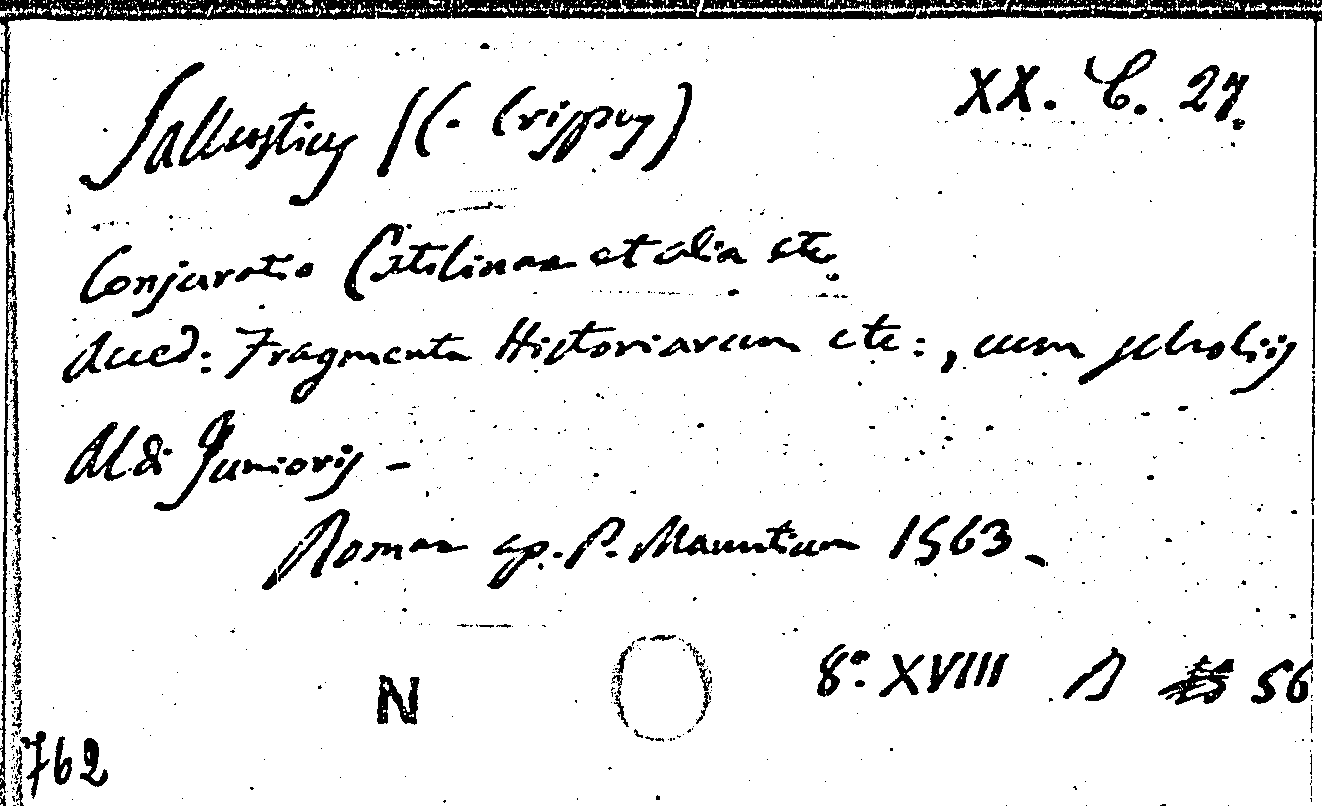 XX. C. 27.
Sallustius (C. Crispus)
Conjuratio Catilinae et alia etc.
Acced: Fragmenta Historiarum etc:, cum scholiis
Aldi Junioris -
Romae ap. P. Manutium 1563.
8º. XVIII 56
N
762